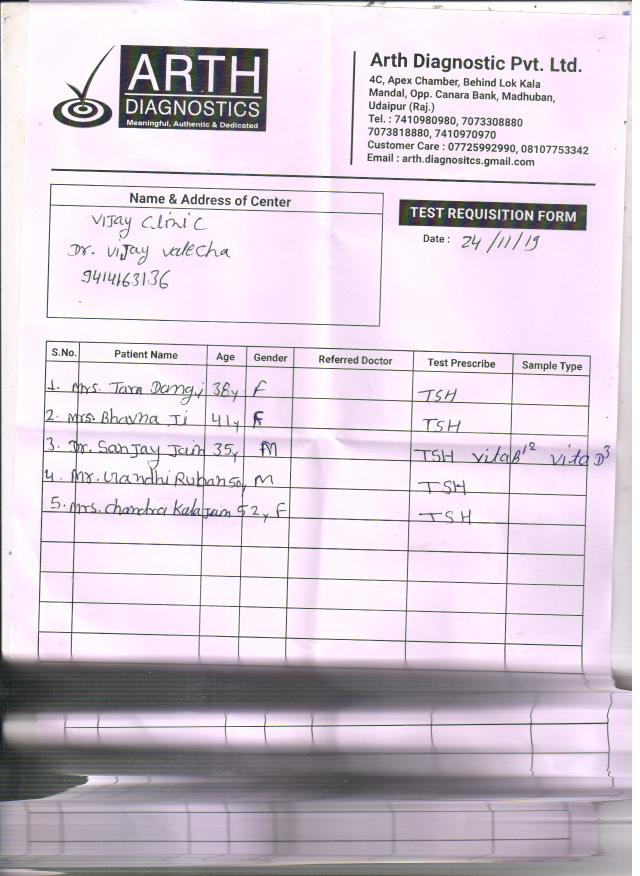 ARTH
DIAGNOSTICS
Meaningful, Authentic & Dedicated
Arth Diagnostic Pvt. Ltd.
4C, Apex Chamber, Behind Lok Kala
Mandal, Opp. Canara Bank, Madhuban,
Udaipur (Raj.)
Tel. : 7410980980, 7073308880
7073818880, 7410970970
Customer Care : 07725992990, 08107753342
Email : arth.diagnositcs.gmail.com
Name & Address of Center
Vijay Clinic
Dr. Vijay Valecha
9414163136
TEST REQUISITION FORM
Date : 24/11/19
S.No. Patient Name Age Gender Referred Doctor Test Prescribe Sample Type
1. Mrs. Tara Dangi 38y F TSH
2. Mrs. Bhavna Ji 41y F TSH
3. Dr. Sanjay Jain 35y M TSH vita B12 vita D3
4. Mr. Ruban 50y M TSH
5. Mrs. Chandra Kala Jain 52y F TSH